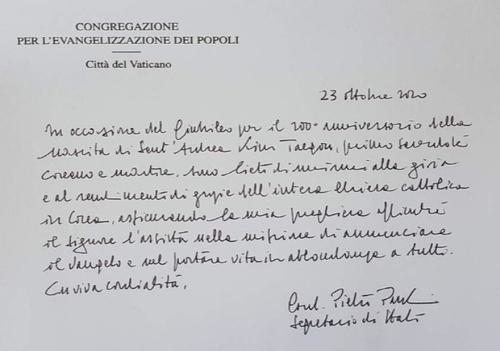 CONGREGAZIONE
PER L'EVANGELIZZAZIONE DEI POPOLI
Città del Vaticano
23 ottobre 2020
In occasione del Giubileo per il 200° anniversario della
nascita di Sant'Andrea Kim Taegon, primo sacerdote
coreano e martire, sono lieto di unirmi alla gioia
e al rendimento di grazie dell'intera Chiesa cattolica
in Corea, assicurando la mia preghiera affinché
il Signore l'assista nella missione di annunciare
il Vangelo e nel portare vita in abbondanza a tutti.
Con viva cordialità,
Card. Pietro
Segretario di Stato